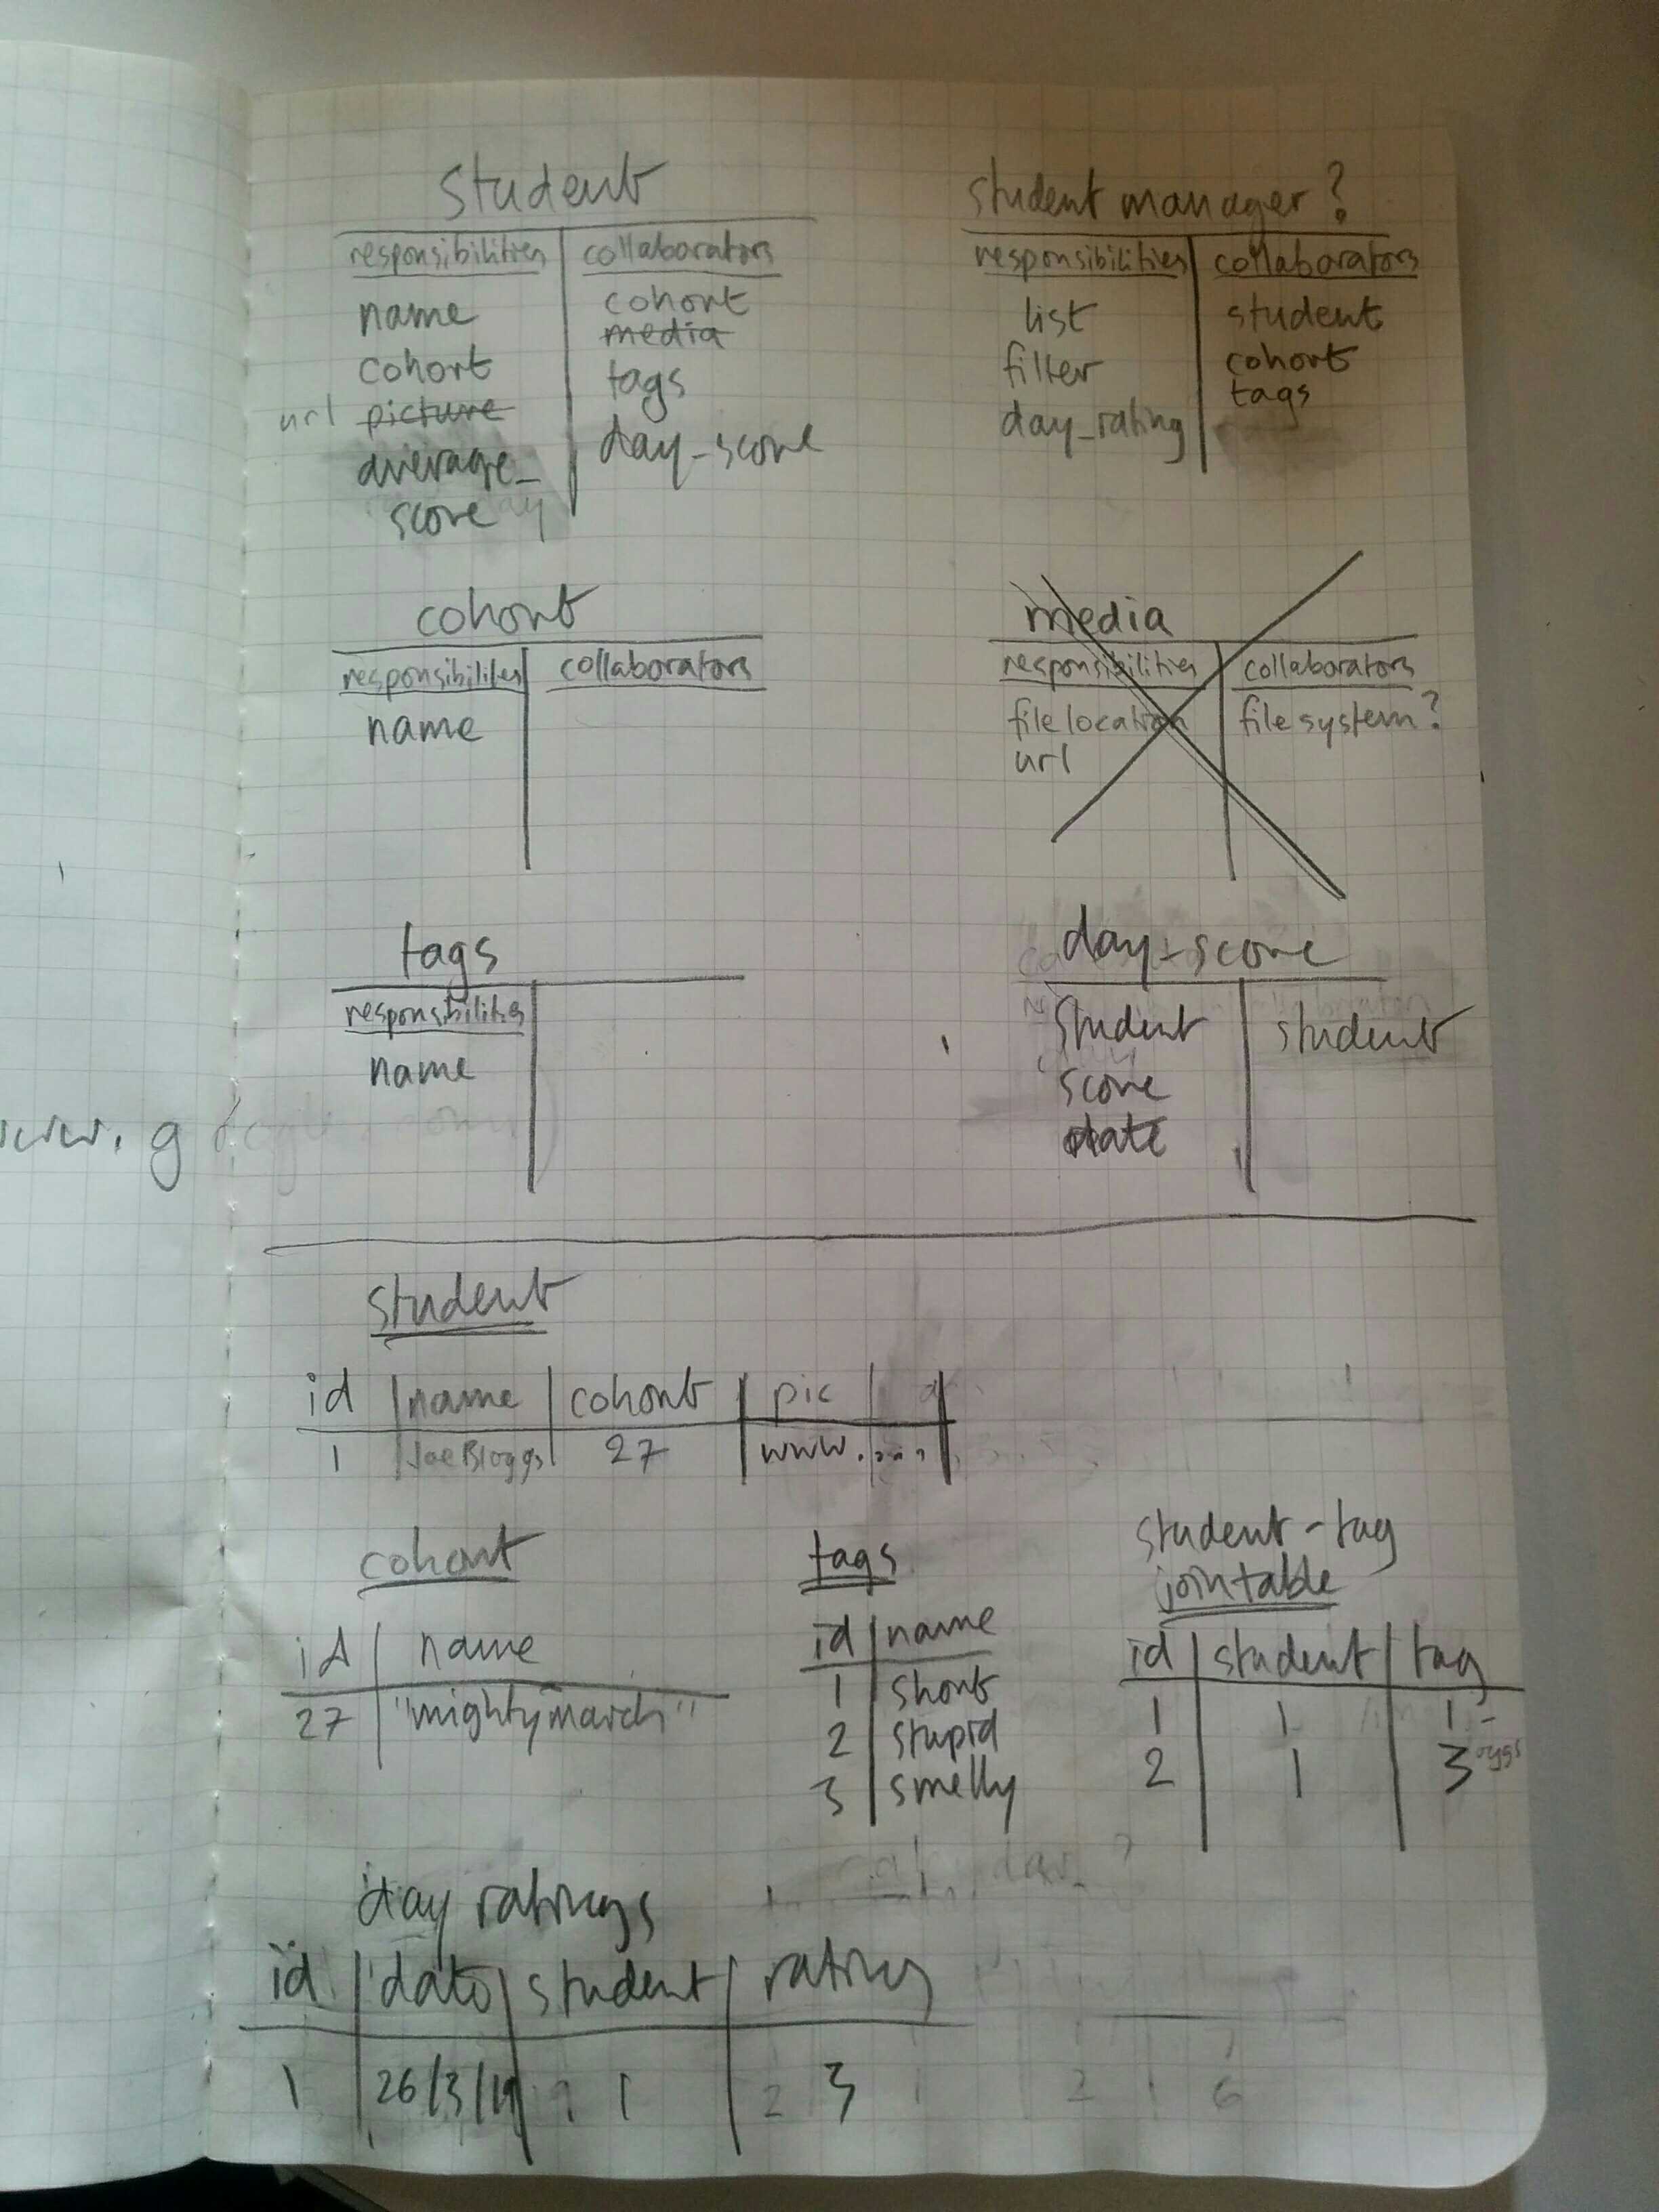 student
responsibilities collaborators
name cohort
media
cohort tags
url picture day_score
average_
score
student manager?
responsibilities collaborators
list student
filter cohort
tags
day_rating
cohort
responsibilities collaborators
name
media
responsibilities collaborators
file location file system?
url
tags
responsibilities
name
day_score
student student
score
date
www. g
student
id name cohort pic
1 Joe Bloggs 27 www. ....
cohort
id name
27 "mightymarch"
tags
id name
1 short
2 stupid
3 smelly
student-tag
jointable
id student tag
1 1 1
2 1 3
day ratings
id date student rating
1 26/3/19 1 3